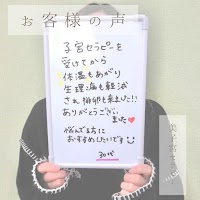 お客様の声
子宮セラピーを
受けてから
体温もあがり
生理痛も軽減
され排卵も来ました!!
ありがとうござい
ました❤
悩んでる方に
おすすめしたいです
30代